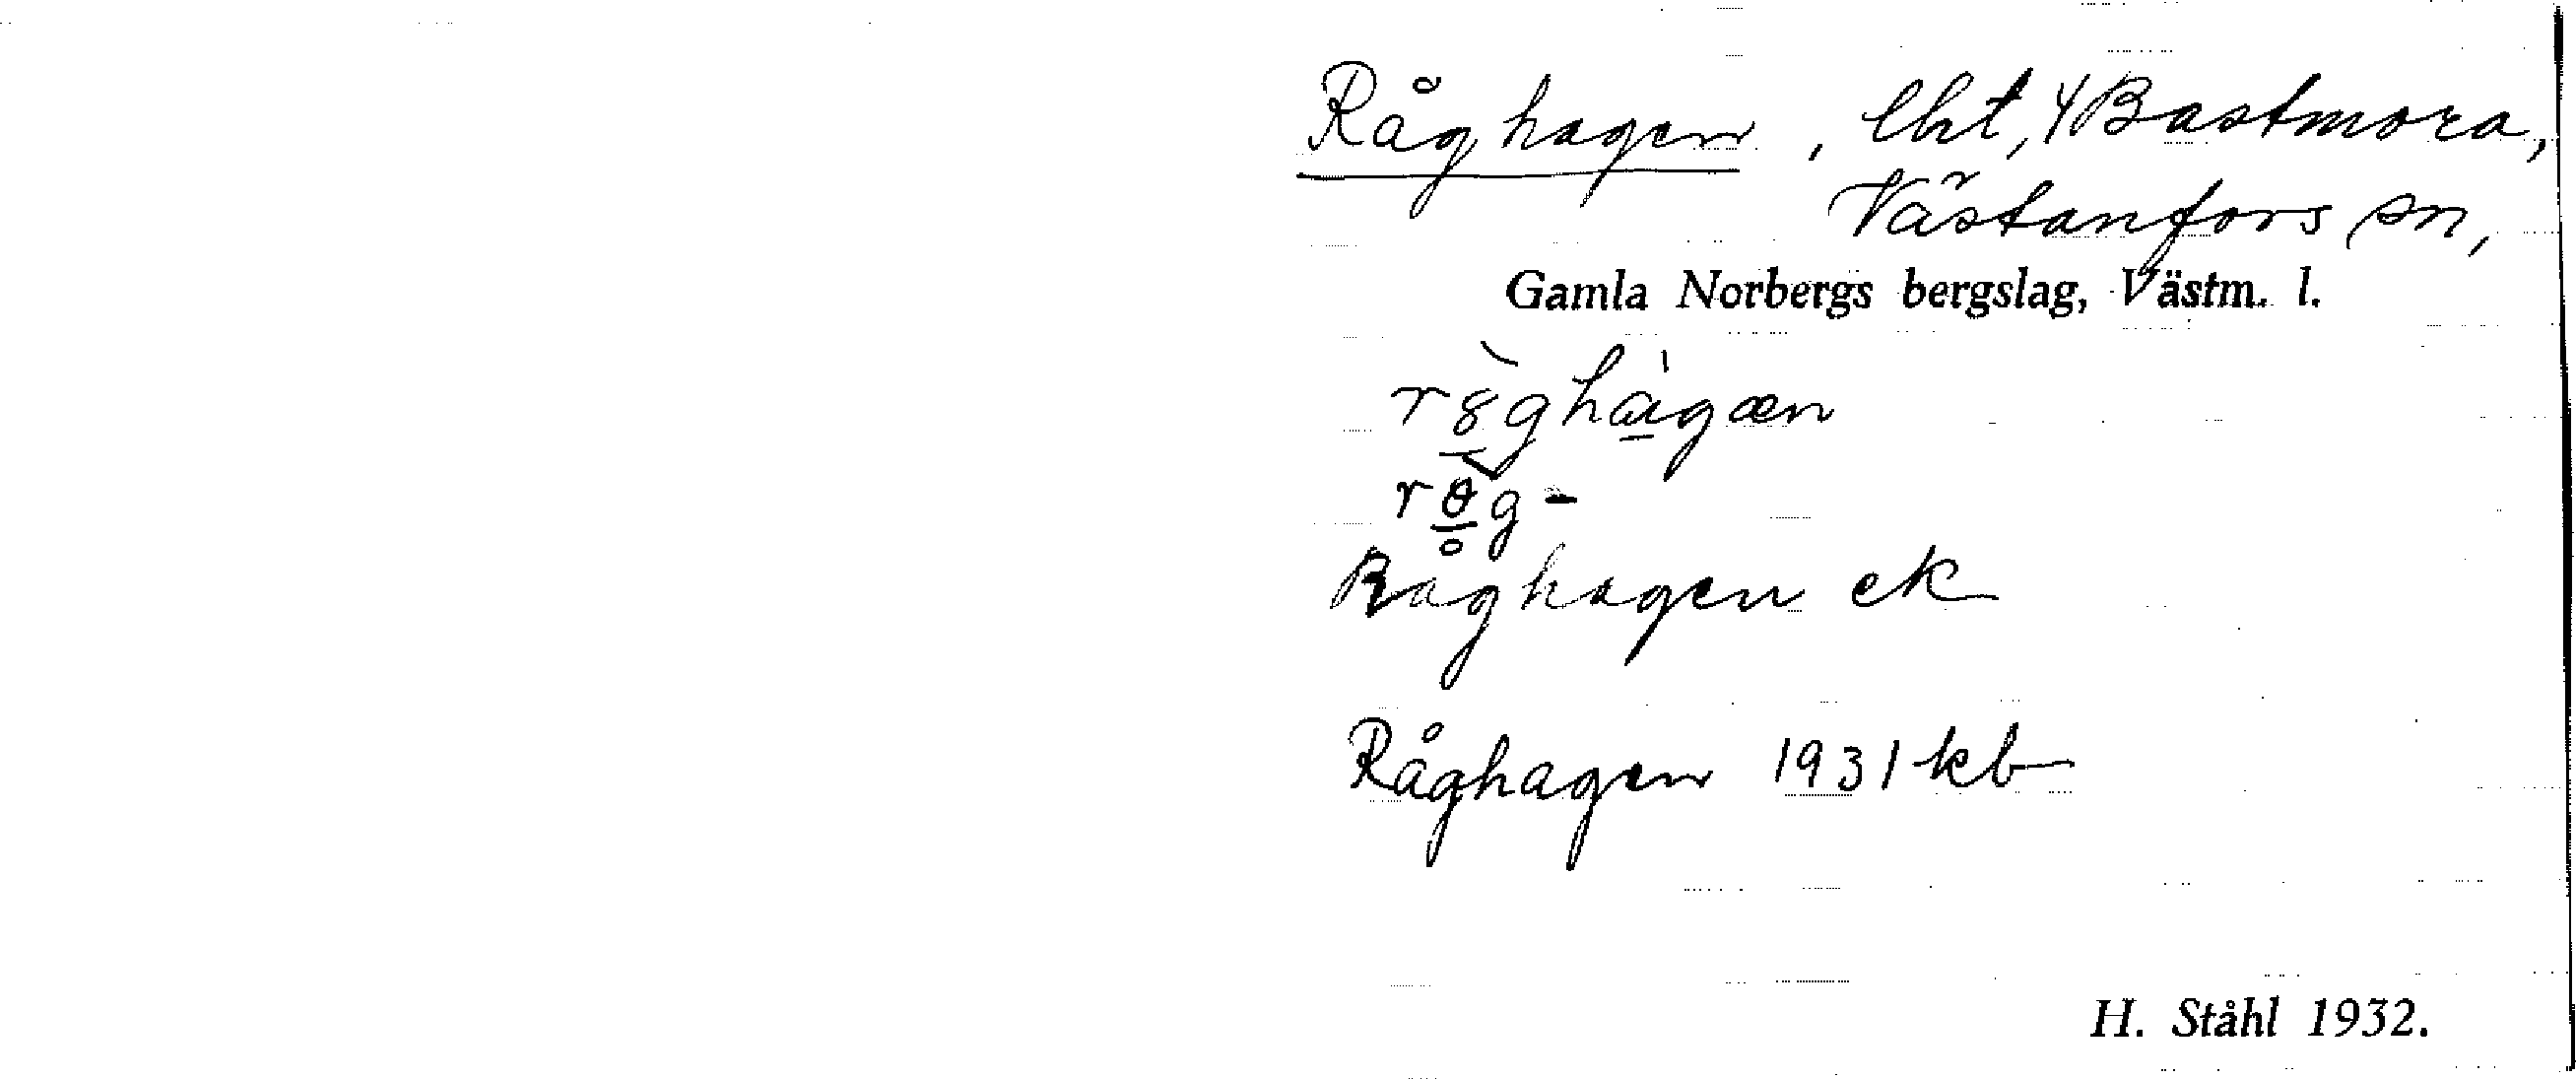 Råghagen, lht, Y Bastmora,
Västanfors sn,
Gamla Norbergs bergslag, Västm. l.
Råghagen ek
Råghagen 1931 kb
H. Ståhl 1932.